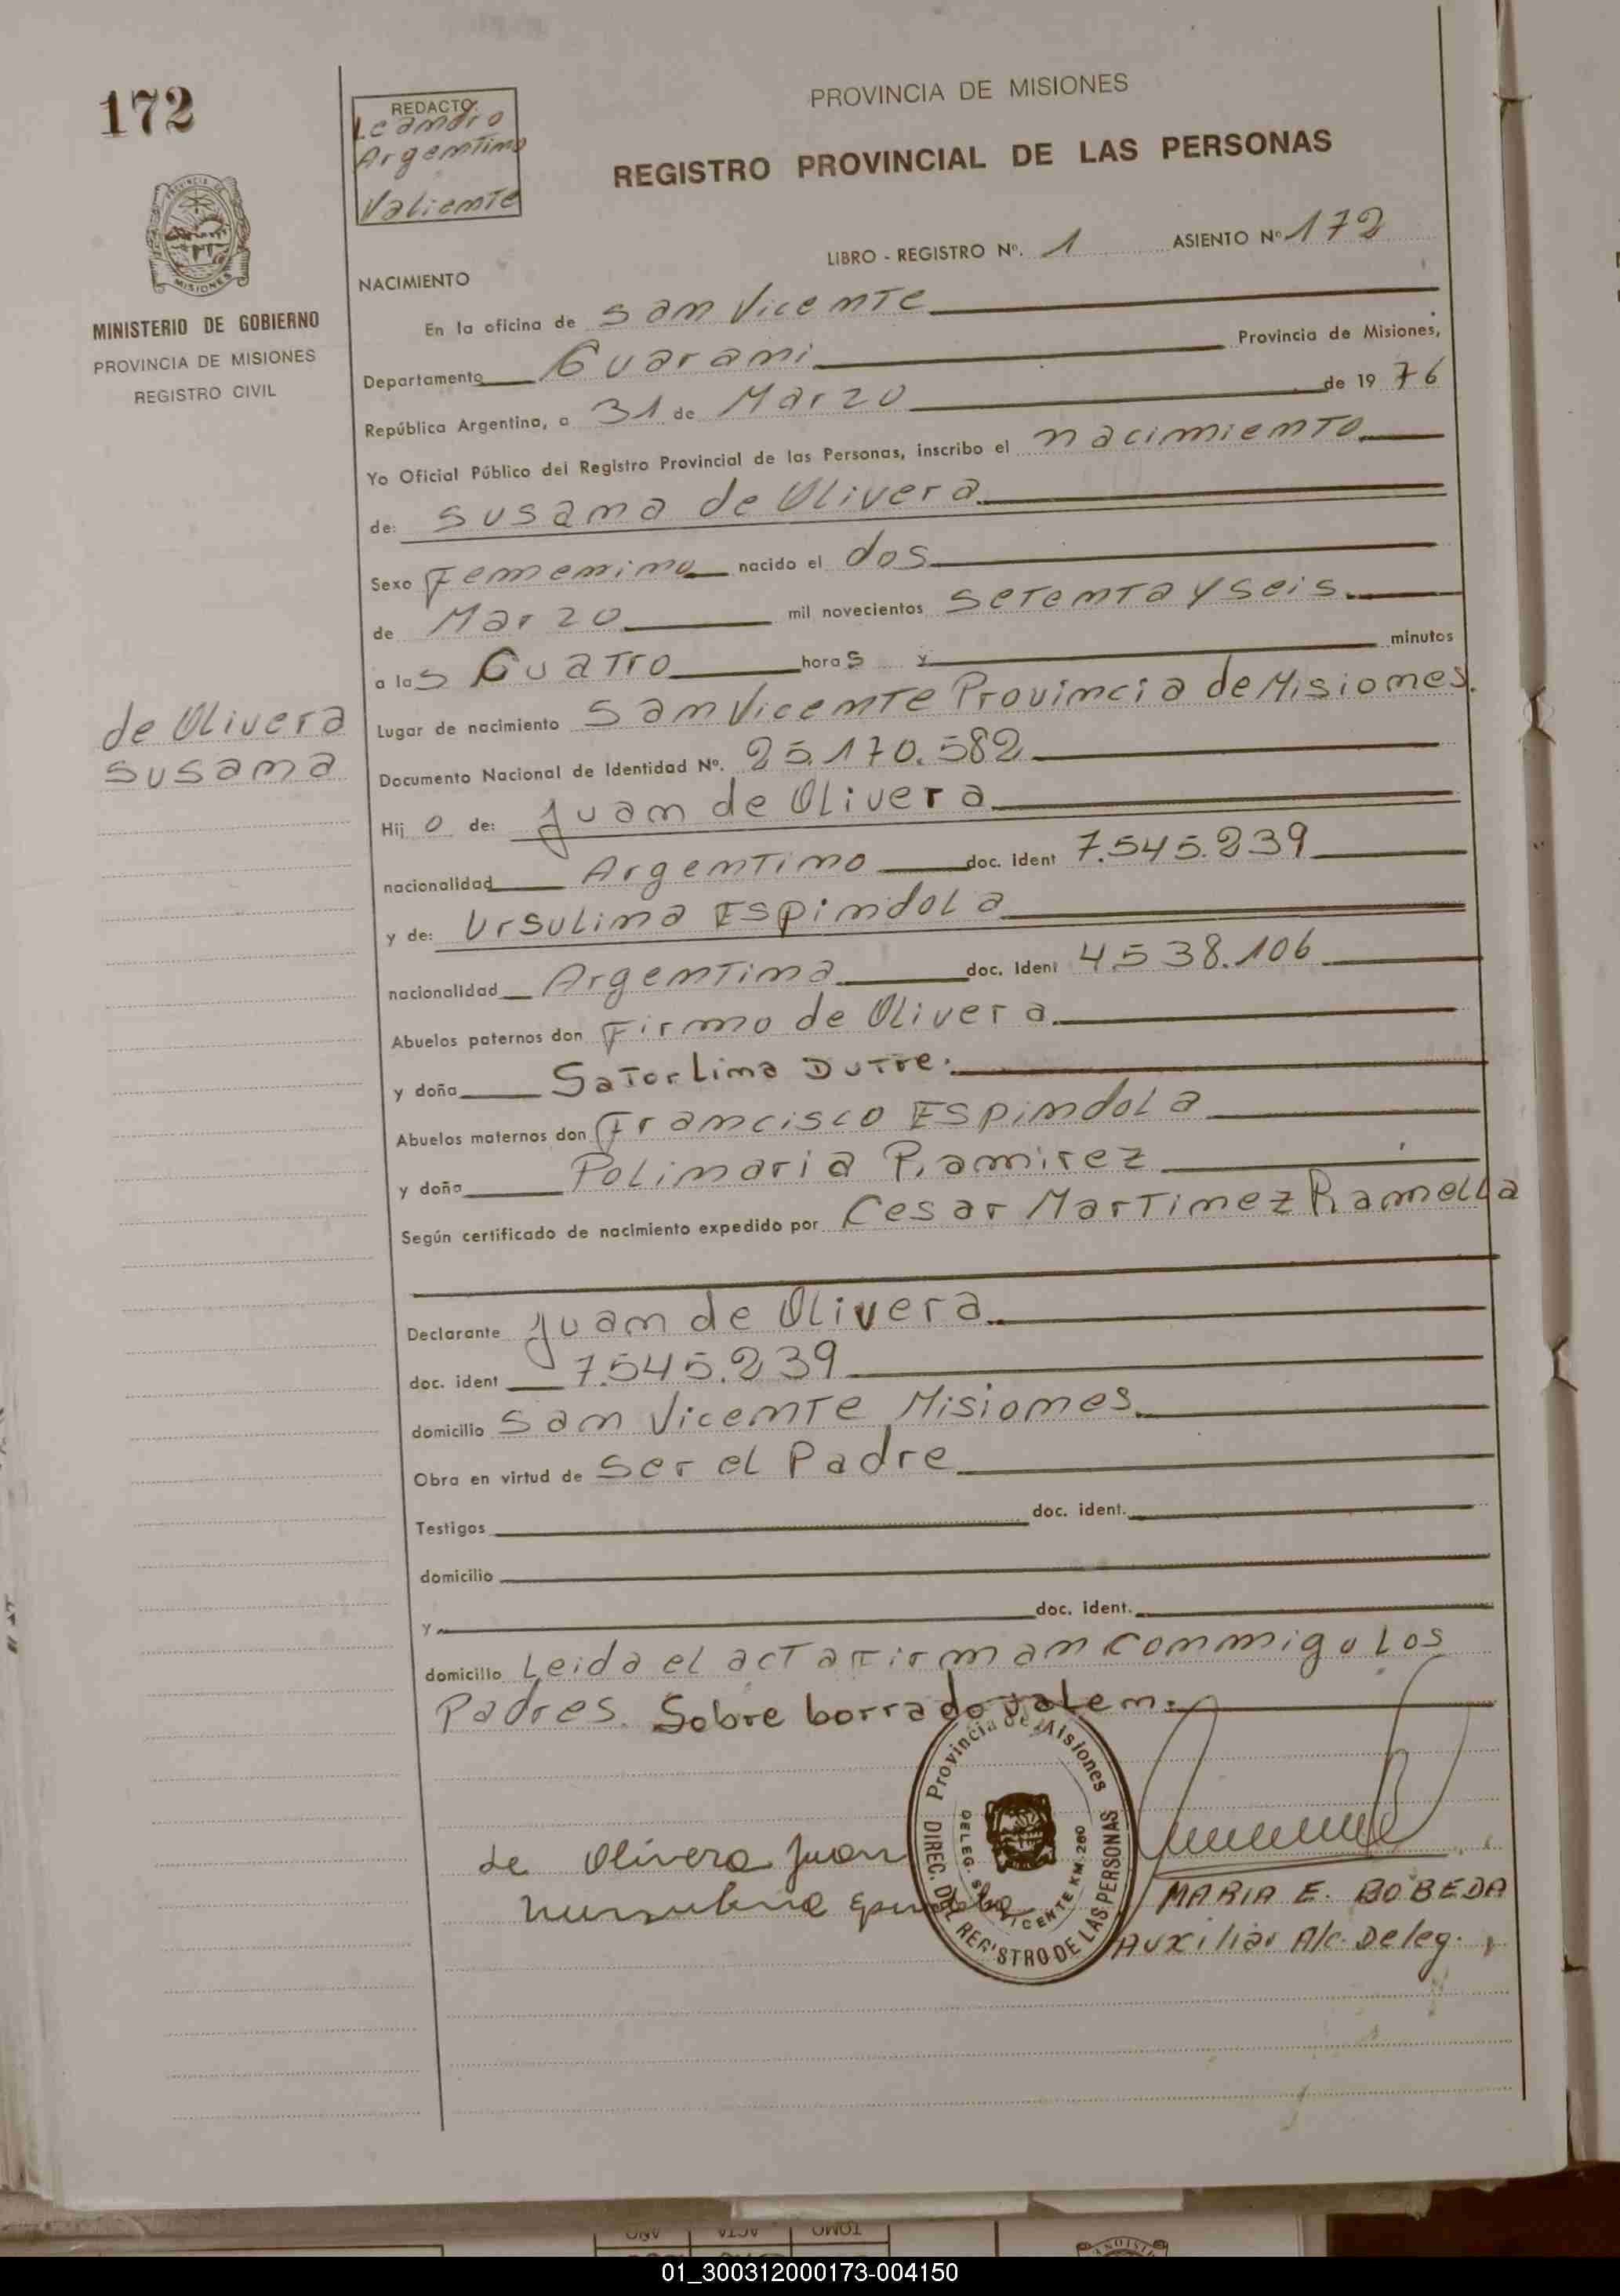 172
REDACTO:
Leandro
Argentino
Valiente
PROVINCIA DE MISIONES
REGISTRO PROVINCIAL DE LAS PERSONAS
LIBRO - REGISTRO Nº. 1 ASIENTO Nº 172
MISIONES
MINISTERIO DE GOBIERNO
PROVINCIA DE MISIONES
REGISTRO CIVIL
NACIMIENTO
En la oficina de San Vicente
Departamento Guarani Provincia de Misiones,
República Argentina, a 31 de Marzo de 19 76
Yo Oficial Público del Registro Provincial de las Personas, inscribo el nacimiento
de: Susana de Olivera
Sexo Femenino nacido el dos
de Marzo mil novecientos setenta y seis
a las Cuatro horas y minutos
de Olivera
Susana
Lugar de nacimiento San Vicente Provincia de Misiones.
Documento Nacional de Identidad Nº. 25.170.582
Hij o de: Juan de Olivera
nacionalidad Argentino doc. ident 7.545.239
y de: Ursulina Espindola
nacionalidad Argentina doc. ident 4.538.106
Abuelos paternos don Firmo de Olivera
y doña Satorlina Dutre.
Abuelos maternos don Francisco Espindola
y doña Polinaria Ramirez
Según certificado de nacimiento expedido por Cesar Martinez Ramella
Declarante Juan de Olivera
doc. ident 7.545.239
domicilio San Vicente Misiones
Obra en virtud de ser el Padre
Testigos doc. ident.
domicilio
y doc. ident.
domicilio Leida el acta firman conmigo los
Padres. Sobre borrado valen.
Provincia de Misiones
DIREC. DEL REGISTRO DE LAS PERSONAS
DELEG. S. VICENTE KM. 260
de Olivera Juan
MARIA E. BOBEDA
Auxiliar A/c. Deleg.
TOMO ACTA AÑO
01_300312000173-004150